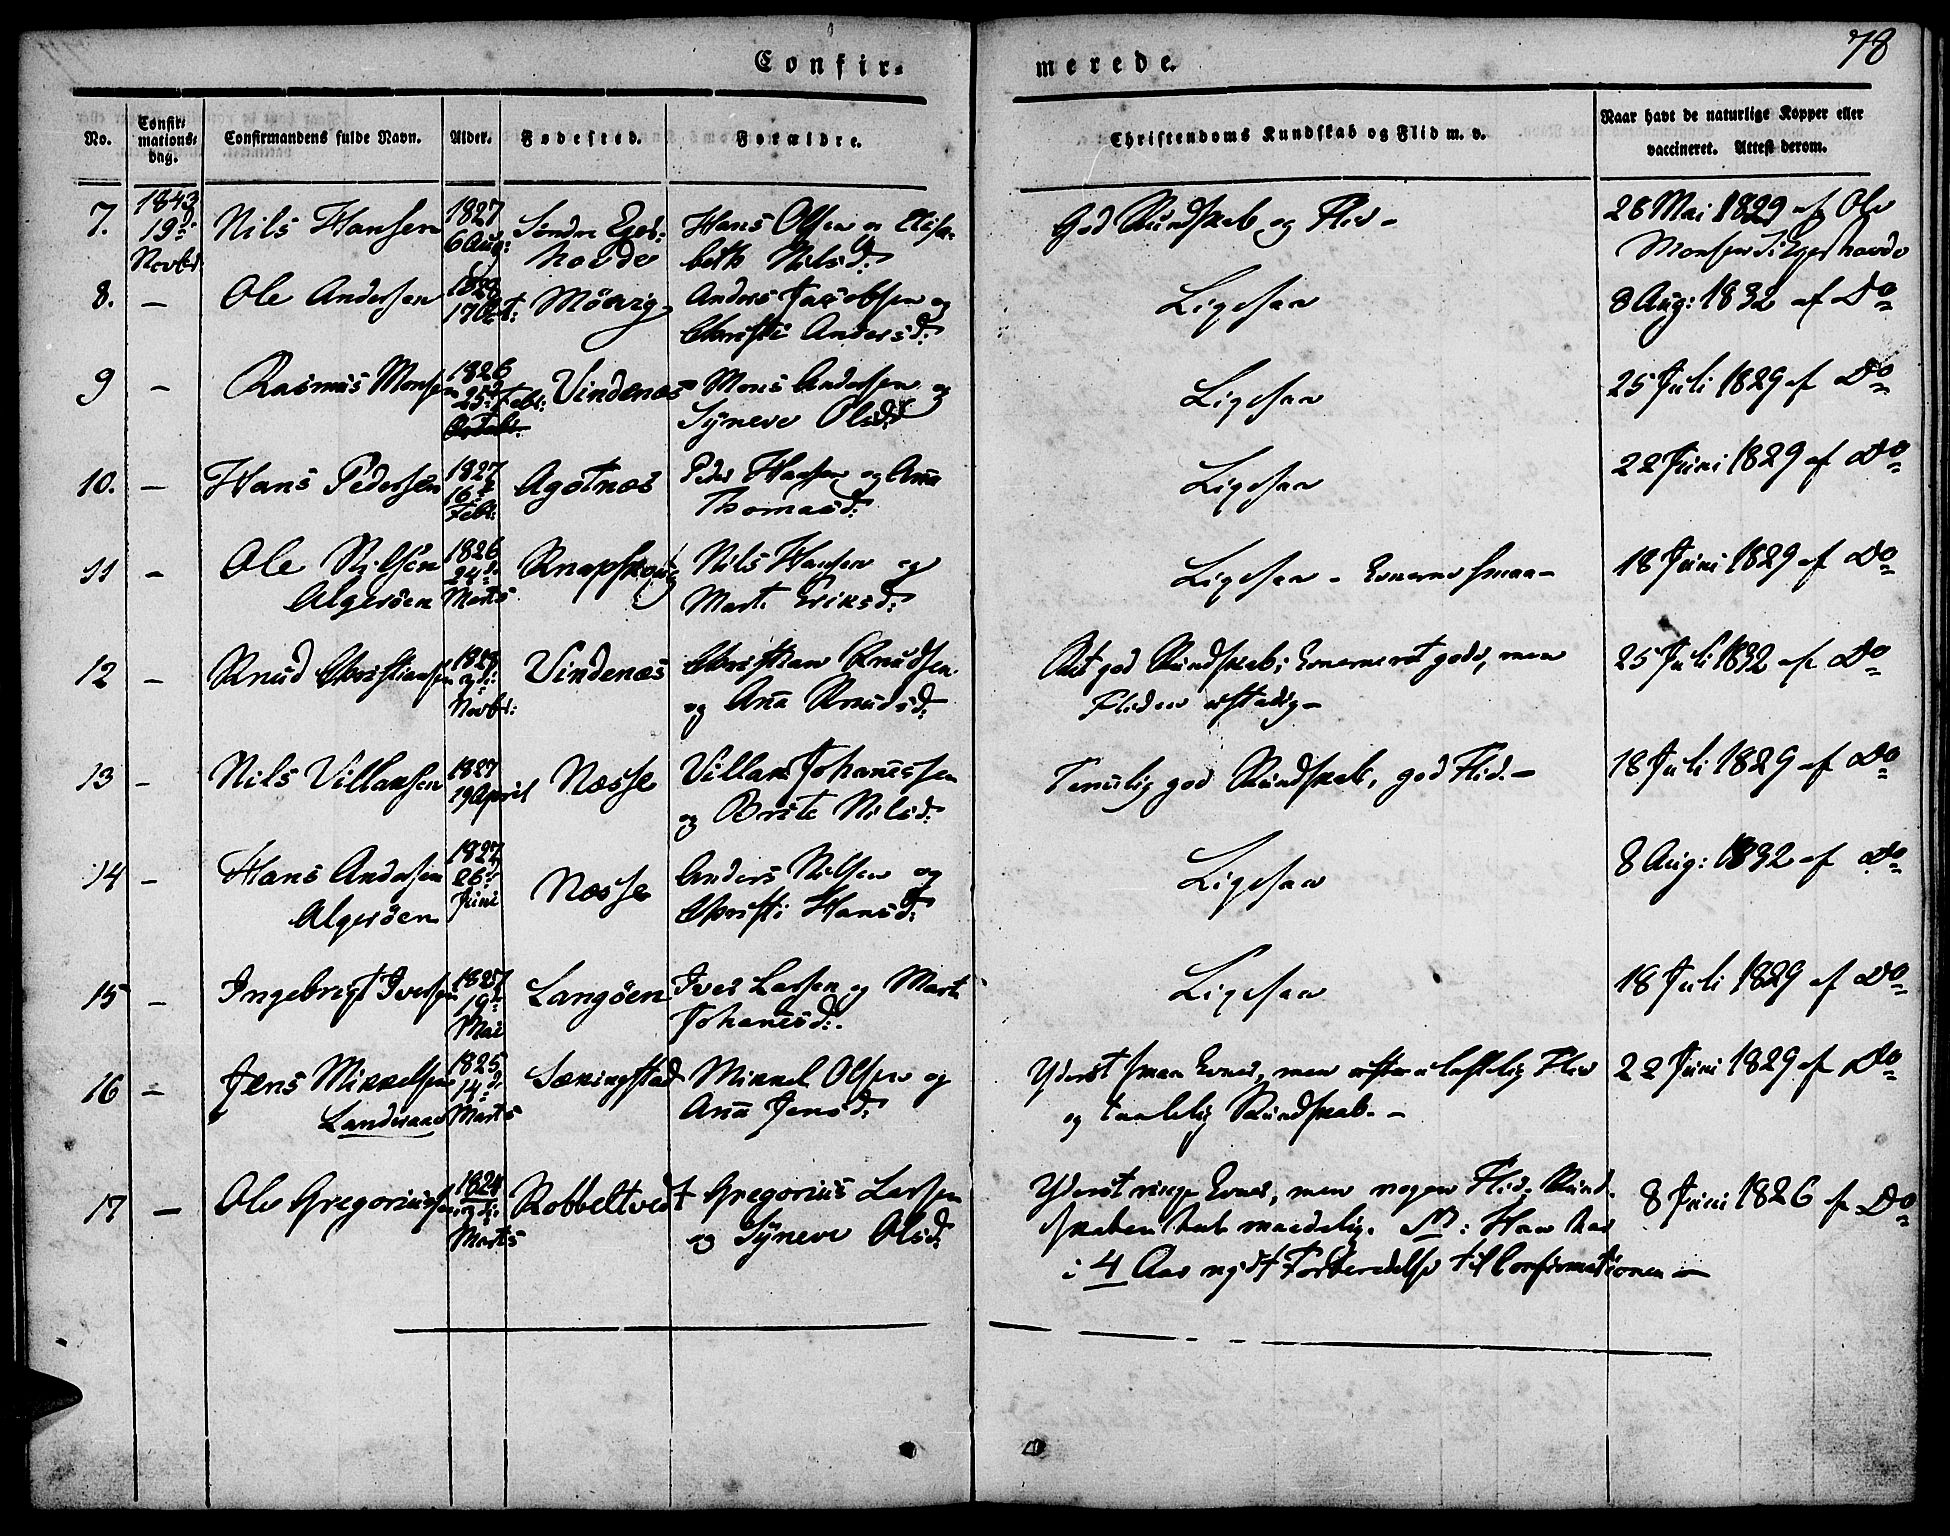 78
Confir- merede.
No. Confirmations-dag. Confirmandens fulde Navn. Alder. Fødested. Forældre. Christendoms Kundskab og Flid m. v. Naar havt de naturlige Kopper eller vaccineret. Attest derom.
7. 1843 19de Novbr: Nils Hansen 1827 6 Aug: Søndre Eger-
hovde Hans Olsen og Elisa-
beth Nilsd: God Kundskab og Flid - 26 Mai 1829 af Ole
Monsen S. Egerhovde
8. - Ole Andersen 1828 17 Oct: Mövig Anders Jacobsen og
Christi Andersd: Ligesaa 8 Aug: 1832 af Do
9 - Rasmus Monsen 1826 25de Febr: Vindenæs Mons Andersen og
Syneve Olsd: Ligesaa 25 Juli 1829 af Do
10. - Hans Pedersen 1827 16de Febr: Agotnæs Peder Hansen og Aña
Thomasd: Ligesaa 22 Juni 1829 af Do
11 - Ole Nilsen
Algeröen 1826 24de Marts Knapskoug Nils Hansen og
Marte Eriksd: Ligesaa - Evnerne smaa - 18 Juni 1829 af Do
12 - Knud Christiansen 1828 3de Novbr: Vindenæs Christian Knudsen
og Aña Knudsd: Ret god Kundskab; Evnerne ret gode, men
Fliden ustadig - 25 Juli 1832 af Do
13 - Nils Villaksen 1827 19 April Næsse Villak Johañessen
og Brite Nilsd: Temelig god Kundskab, god Flid. - 18 Juli 1829 af Do
14 - Hans Andersen
Algeröen 1827 26de Juni Næsse Anders Nilsen og
Christi Hansd: Ligesaa 8 Aug: 1832 af Do
15 - Ingebrigt Iversen 1827 19de Mai Langöen Iver Larsen og Marte
Johañesd: Ligesaa 18 Juli 1829 af Do
16 - Jens Mikkelsen
Landeraae 1825 14de Marts Sækingstad Mikkel Olsen og
Aña Jensd: Yderst smaa Evner, men efterladelig Flid
og taalelig Kundskab. - 22 Juni 1829 af Do
17 - Ole Gregoriussen 1824 3de Marts Kobbeltvedt Gregorius Larsen
og Syneve Olsd: Yderst ringe Evner, men nogen Flid. Kund-
skaben kuns maadelig. NB: Han har
i 4 Aar nydt Forberedelse til Confirmationen - 8 Juni 1826 af Do